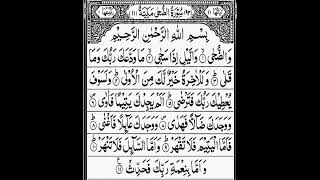 سُوْرَةُ الضُّحٰى
بِسْمِ اللّٰهِ الرَّحْمٰنِ الرَّحِيْمِ
وَالضُّحٰى ۙ﴿۱﴾ وَالَّيْلِ اِذَا سَجٰى ۙ﴿۲﴾ مَا وَدَّعَكَ رَبُّكَ وَمَا
قَلٰى ؕ﴿۳﴾ وَلَلْاٰخِرَةُ خَيْرٌ لَّكَ مِنَ الْاُوْلٰى ؕ﴿۴﴾ وَلَسَوْفَ
يُعْطِيْكَ رَبُّكَ فَتَرْضٰى ؕ﴿۵﴾ اَلَمْ يَجِدْكَ يَتِيْمًا فَاٰوٰى ۪﴿۶﴾ وَ
وَجَدَكَ ضَآلًّا فَهَدٰى ۪﴿۷﴾ وَوَجَدَكَ عَآئِلًا فَاَغْنٰى ؕ﴿۸﴾
فَاَمَّا الْيَتِيْمَ فَلَا تَقْهَرْ ؕ﴿۹﴾ وَاَمَّا السَّآئِلَ فَلَا تَنْهَرْ ؕ﴿۱۰﴾
وَاَمَّا بِنِعْمَةِ رَبِّكَ فَحَدِّثْ ﴿۱۱﴾